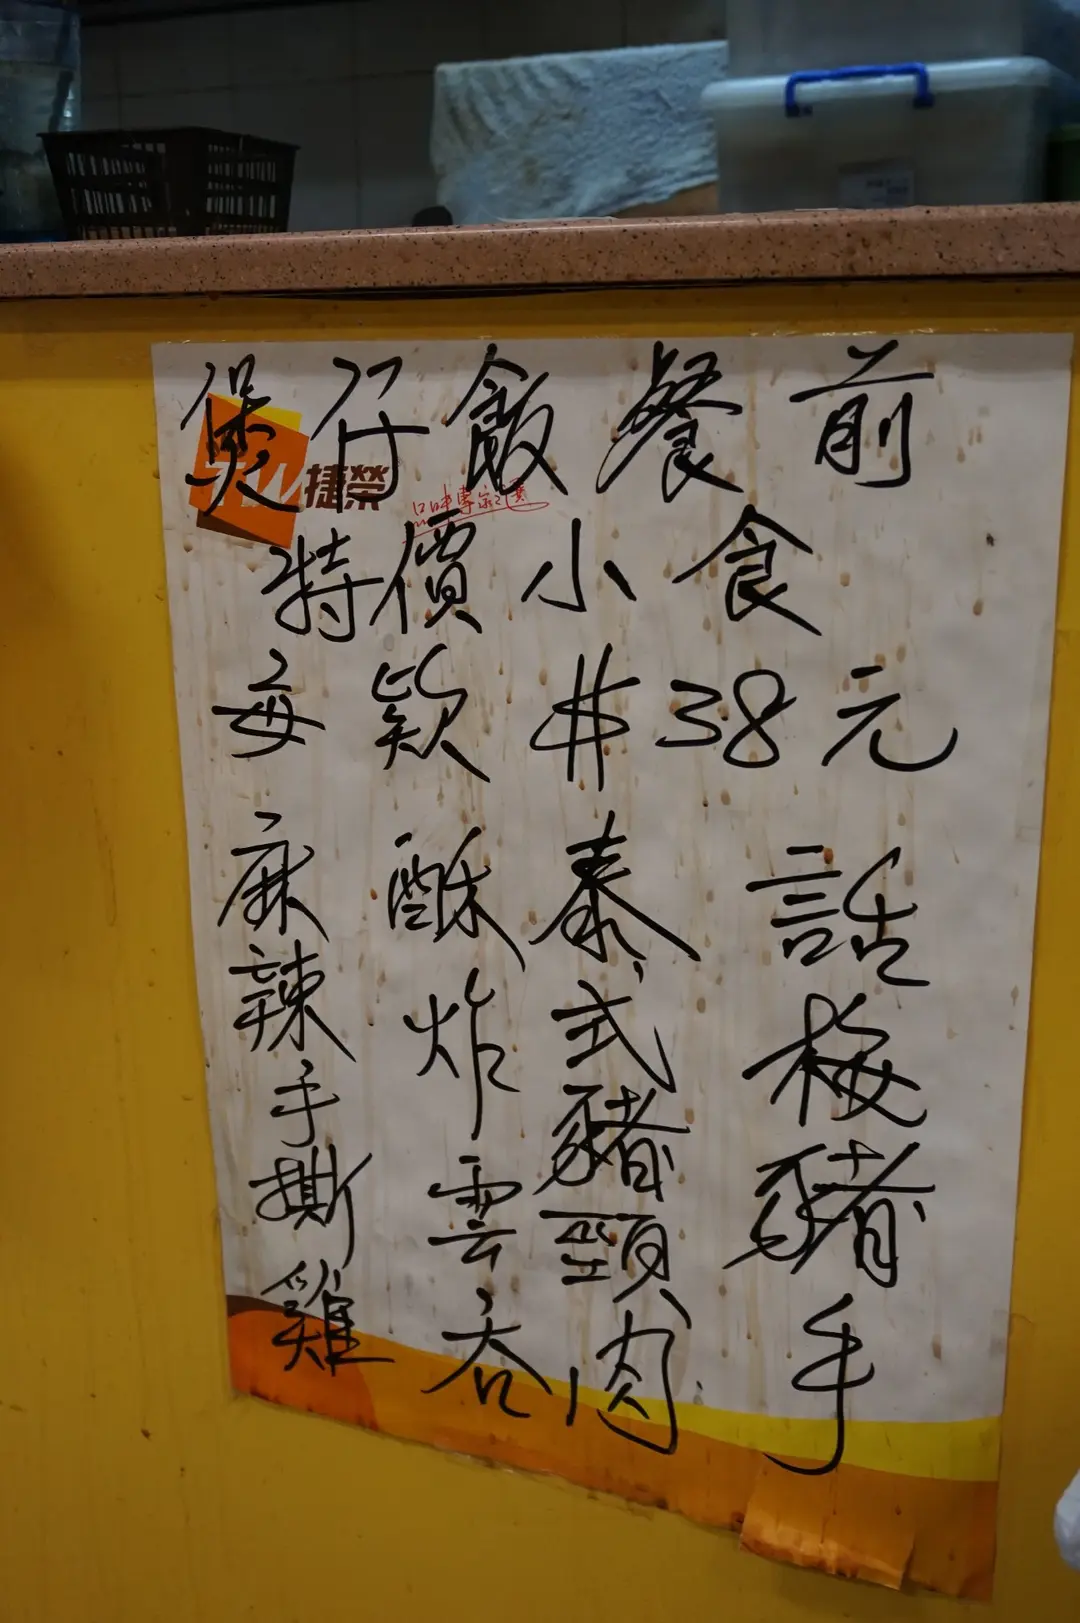 煲仔飯餐前
捷榮
品味專家之選
特價小食
每款 $38元
話梅豬手
泰式豬頸肉
酥炸雲吞
麻辣手撕雞